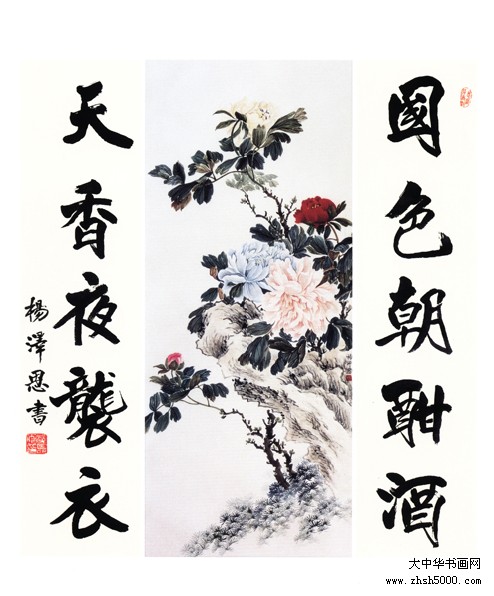 國色朝酣酒
天香夜襲衣
楊澤恩書
大中华书画网
www.zhsh5000.com